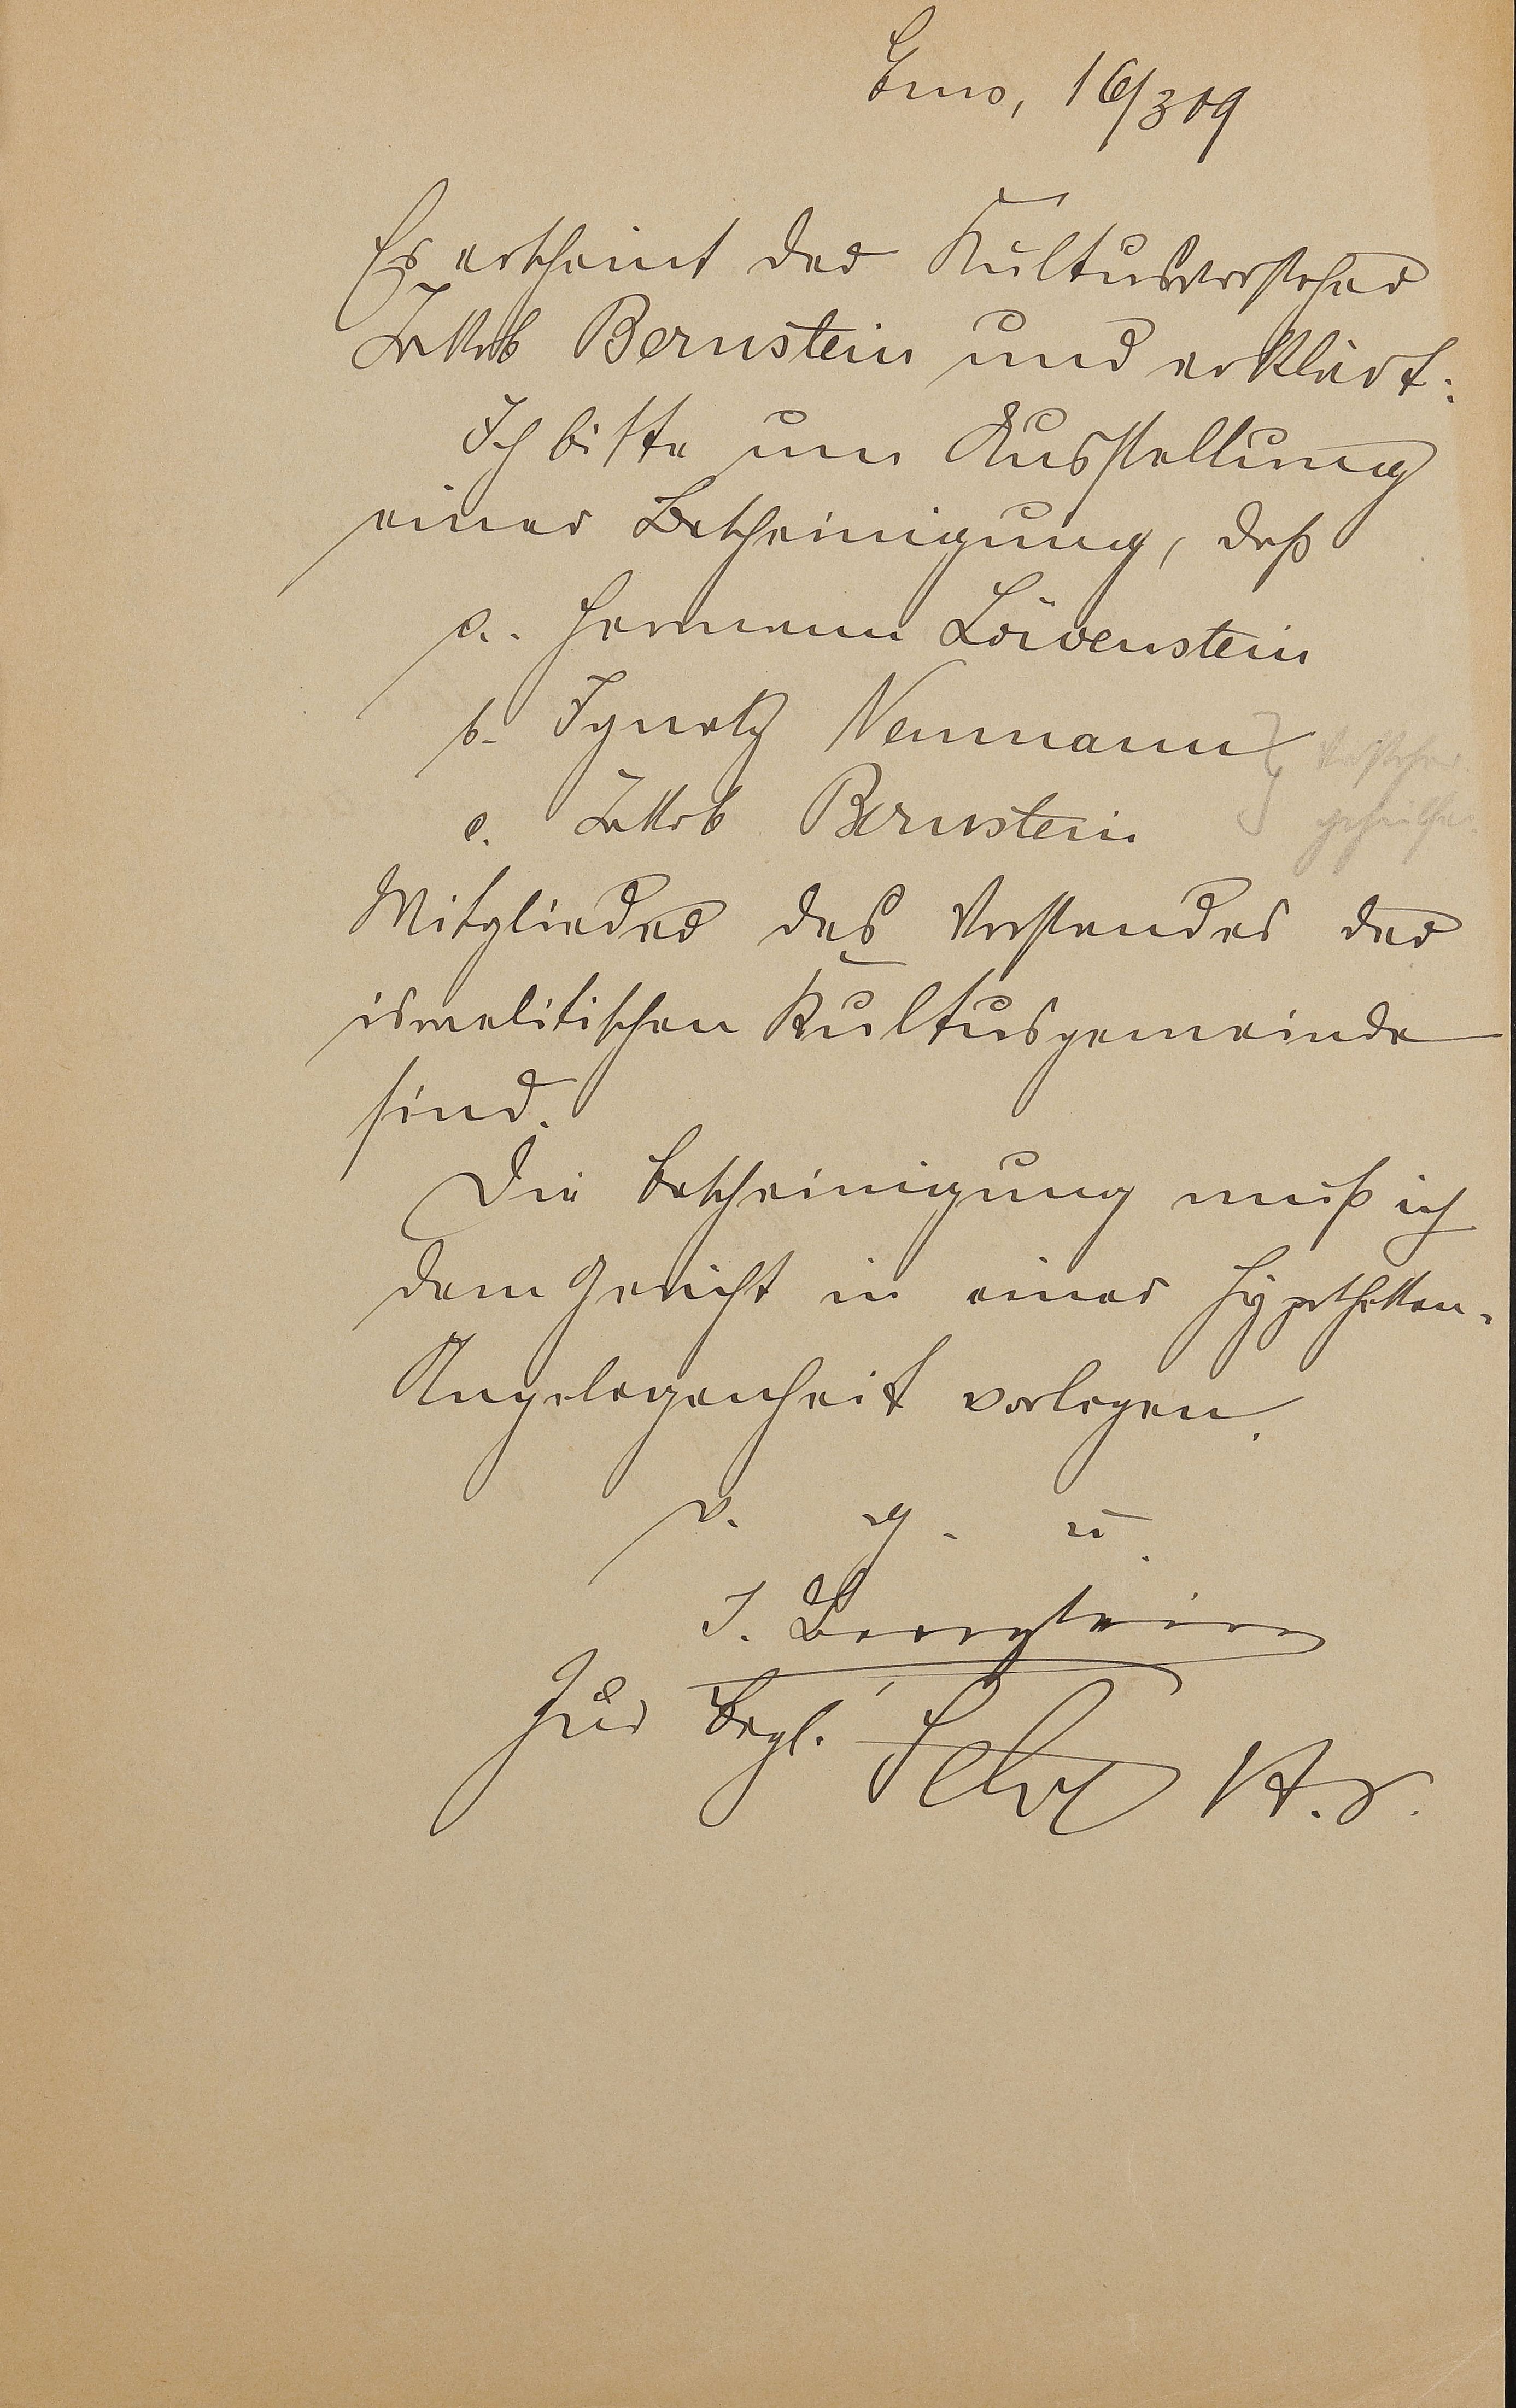 Ems, 16/3 09
Es erscheint der Kultusvorsteher
Jakob Bernstein und erklärt:
Ich bitte um Ausstellung
einer Bescheinigung, daß
a. Hermann Löwenstein
b. Ignatz Neumann } Vorsteher
c. Jakob Bernstein gehülfen
Mitglieder des Vorstandes der
israelitischen Kultusgemeinde
sind.
Die Bescheinigung muß ich
dem Gericht in einer Hypotheken-
Angelegenheit vorlegen.
v. g. u.
J. Bernstein
Zur Begl.